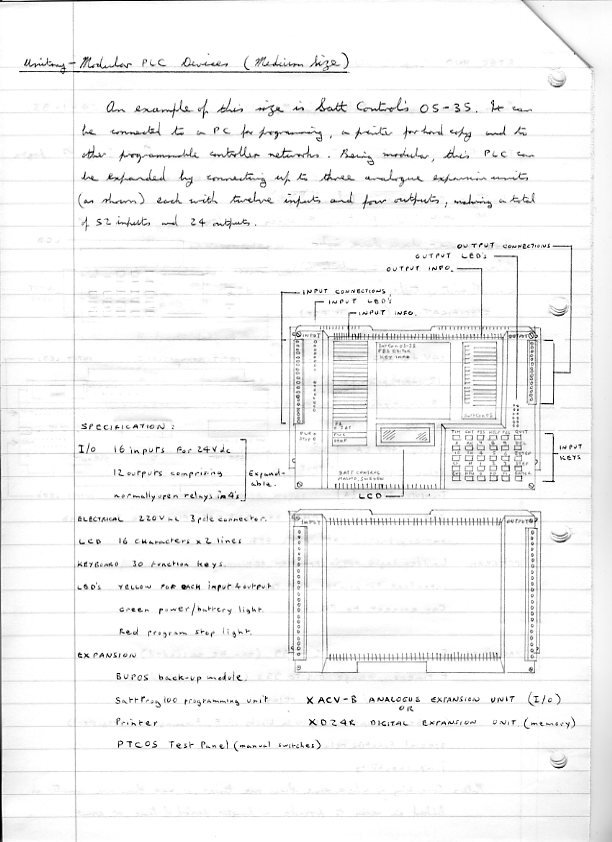 Unitary - Modular PLC Devices (Medium Size)
An example of this size is Satt Control's OS-35. It can
be connected to a PC for programming, a printer for hard copy and to
other programmable controller networks. Being modular, this PLC can
be expanded by connecting up to three analogue expansion units
(as shown) each with twelve inputs and four outputs, making a total
of 52 inputs and 24 outputs.
OUTPUT CONNECTIONS
OUTPUT LED's
OUTPUT INFO.
INPUT CONNECTIONS
INPUT LED's
INPUT INFO.
INPUT
OUTPUT
KEY INFO
SattCon 35
TIM CNT PSS HELP QUIT
INPUT
KEYS
SATT CONTROL
LCD
SPECIFICATION:
I/O 16 inputs for 24V dc
12 outputs comprising
normally open relays in 4's
Expand-
able.
ELECTRICAL 220V ac 3 pole connector.
LCD 16 characters x 2 lines
KEYBOARD 30 function keys.
LED's YELLOW FOR EACH input & output
Green power/battery light.
Red program stop light.
INPUT
OUTPUT
EXPANSION
BUPOS back-up module.
SattProg100 programming unit
Printer
PTCOS Test Panel (manual switches)
XACV-B ANALOGUE EXPANSION UNIT (I/O)
OR
XD24R DIGITAL EXPANSION UNIT (memory)